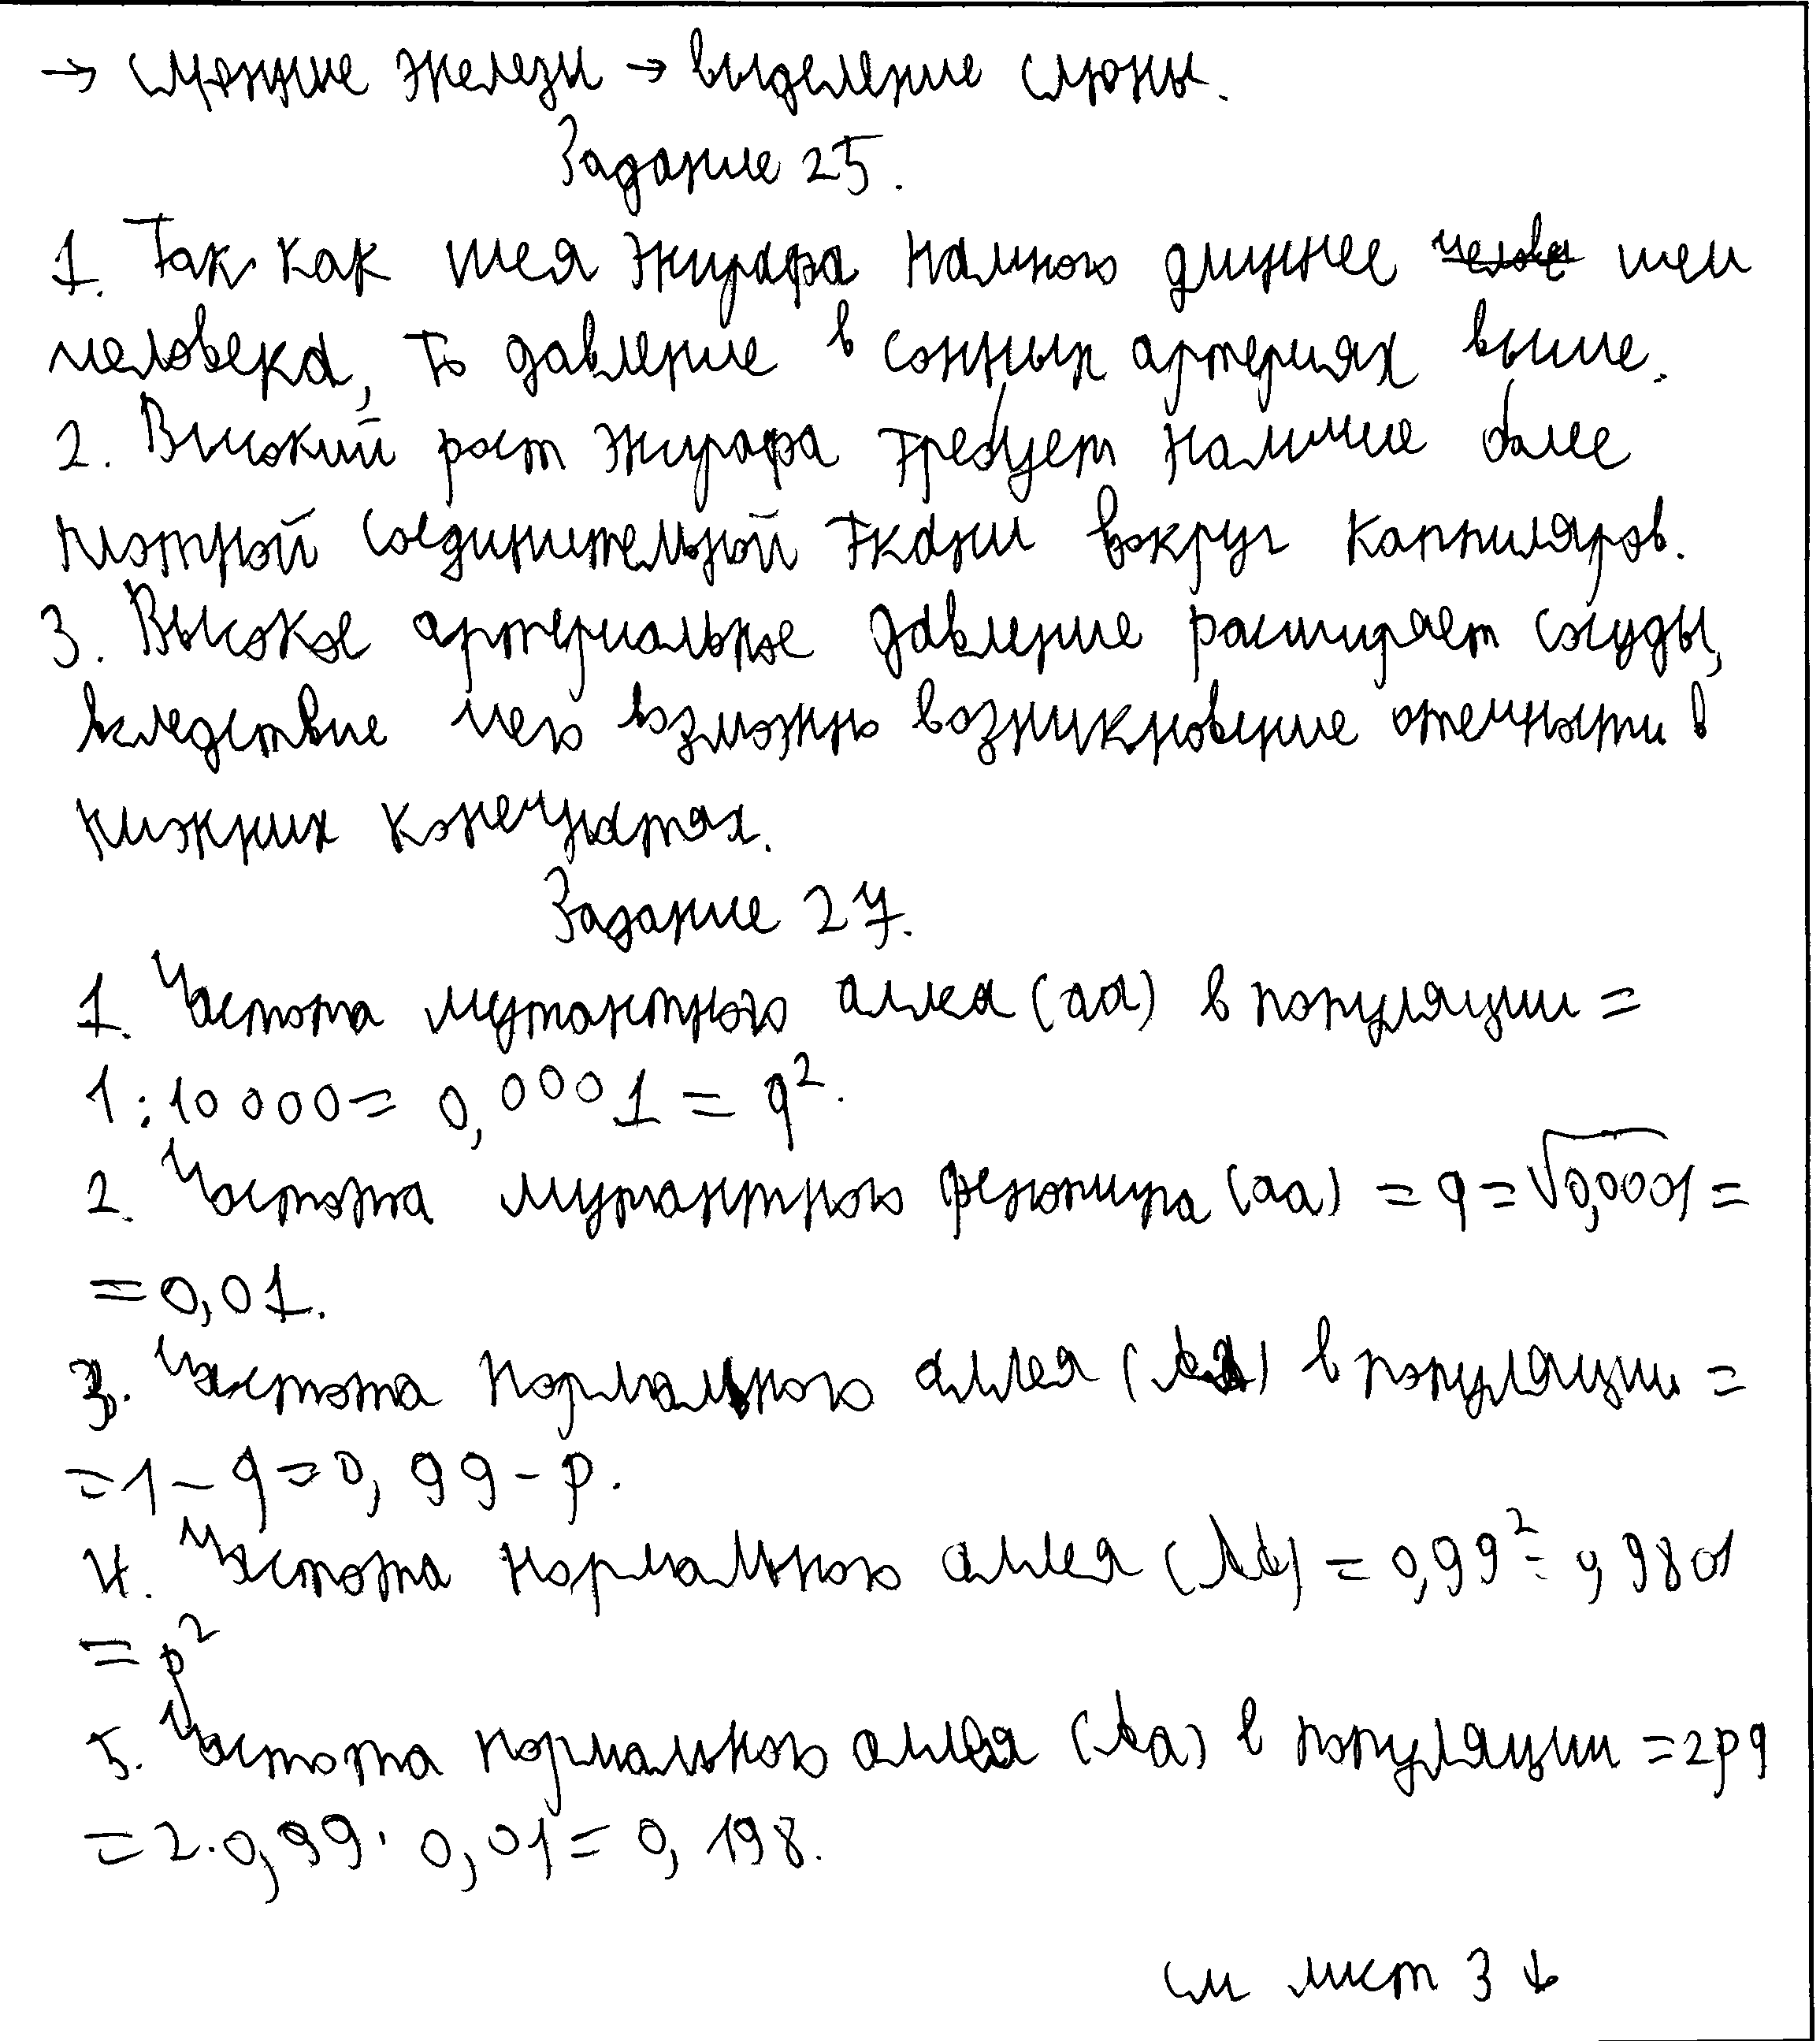 → слюнные железы → выделение слюны.
Задание 25.
1. Так как шея жирафа намного длиннее челове шеи
человека, то давление в сонных артериях выше.
2. Высокий рост жирафа требует наличие более
плотной соединительной ткани вокруг каппиляров.
3. Высокое артериальное давление расширяет сосуды,
вследствие чего возможно возникновение отечности в
нижних конечностях.
Задание 27.
1. Частота мутантного аллея (аа) в популяции =
1:10 000 = 0,0001 = q².
2. Частота мутантного фенотипа (аа) = q = √0,0001 =
= 0,01.
3. Частота нормального аллея в популяции =
= 1 – q = 0,99 – p.
4. Частота нормального аллея (АА) = 0,99² = 0,9801
= p²
5. Частота нормального аллея (Аа) в популяции = 2pq
= 2·0,99·0,01 = 0,198.
см лист 3 ↓